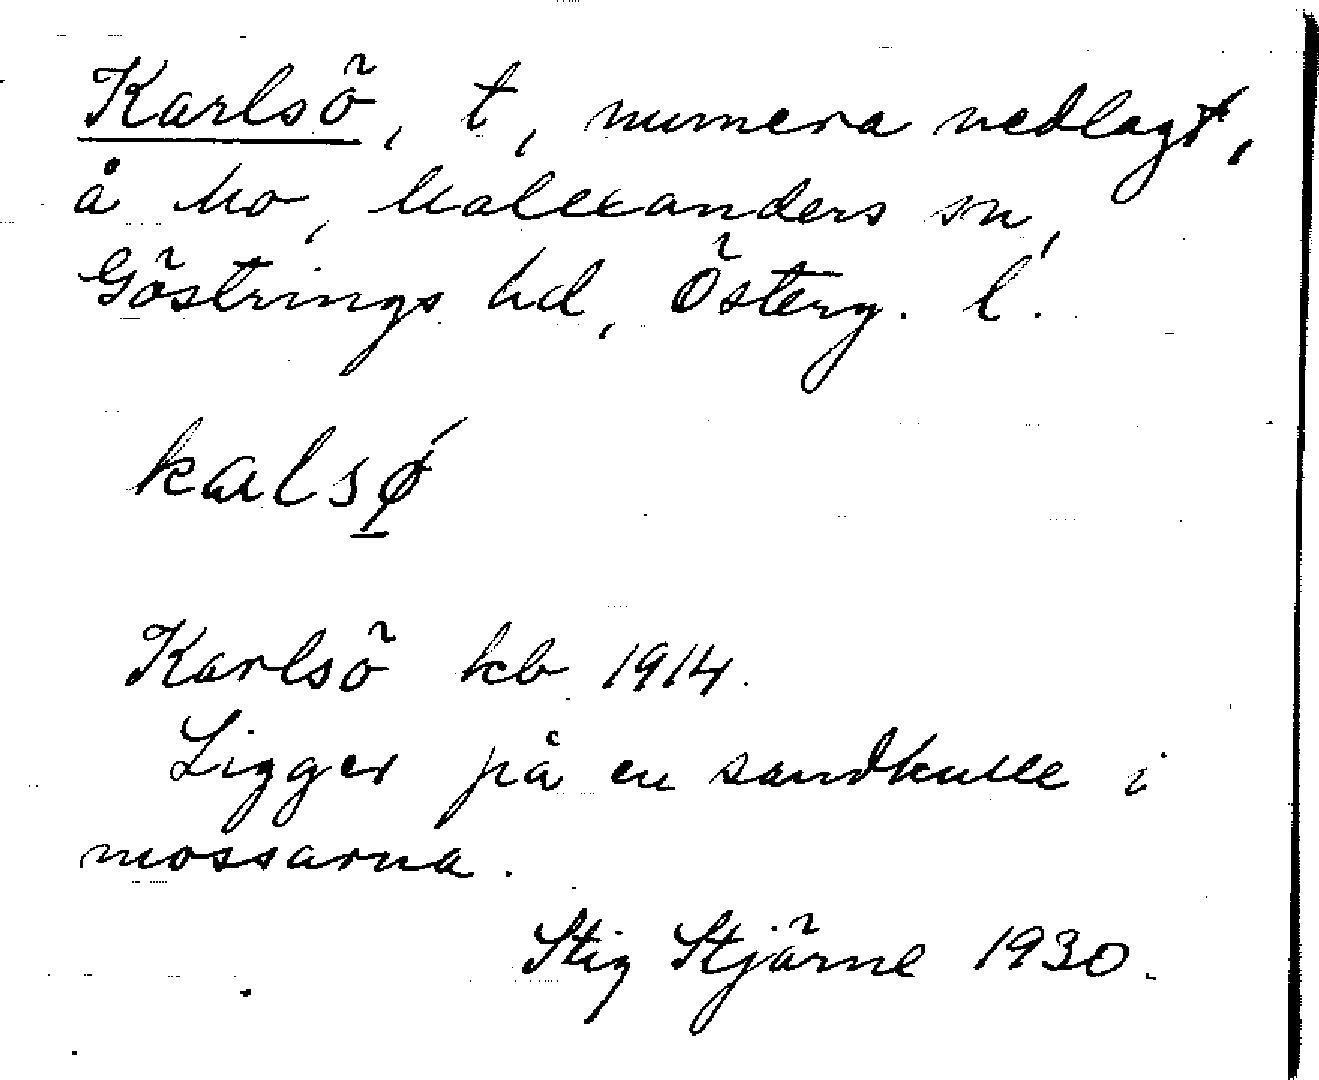 Karlsö, t, numera nedlagt,
å Mo, Malexanders sn,
Göstrings hd, Österg. l.
kalsǿ̱
Karlsö kb 1914.
Ligger på en sandkulle i
mossarna.
Stig Stjärne 1930.